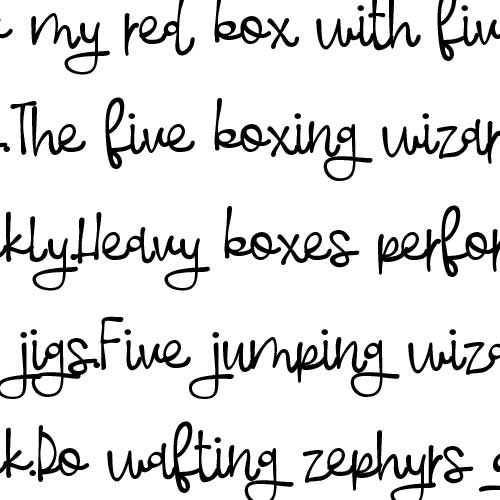 my red box with five
.The five boxing wizar
kly.Heavy boxes perfor
jigs.Five jumping wiza
k.Do wafting zephyrs